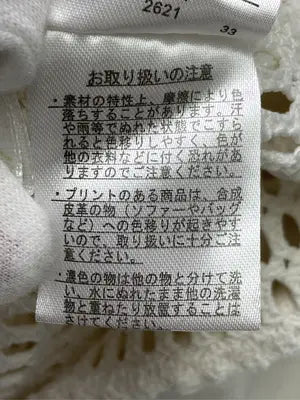 2621
33
お取り扱いの注意
・素材の特性上、摩擦により色
落ちすることがあります。汗
や雨等でぬれた状態でこすら
れると色移りしやすく、色が
他の衣料などに付く恐れがあ
りますのでご注意ください。
・プリントのある商品は、合成
皮革の物(ソファーやバッグ
など)への色移りが起きやす
いので、取り扱いに十分ご注
意ください。
・濃色の物は他の物と分けて洗
い、水にぬれたまま他の洗濯
物と重ねたり放置することは
さけてください。